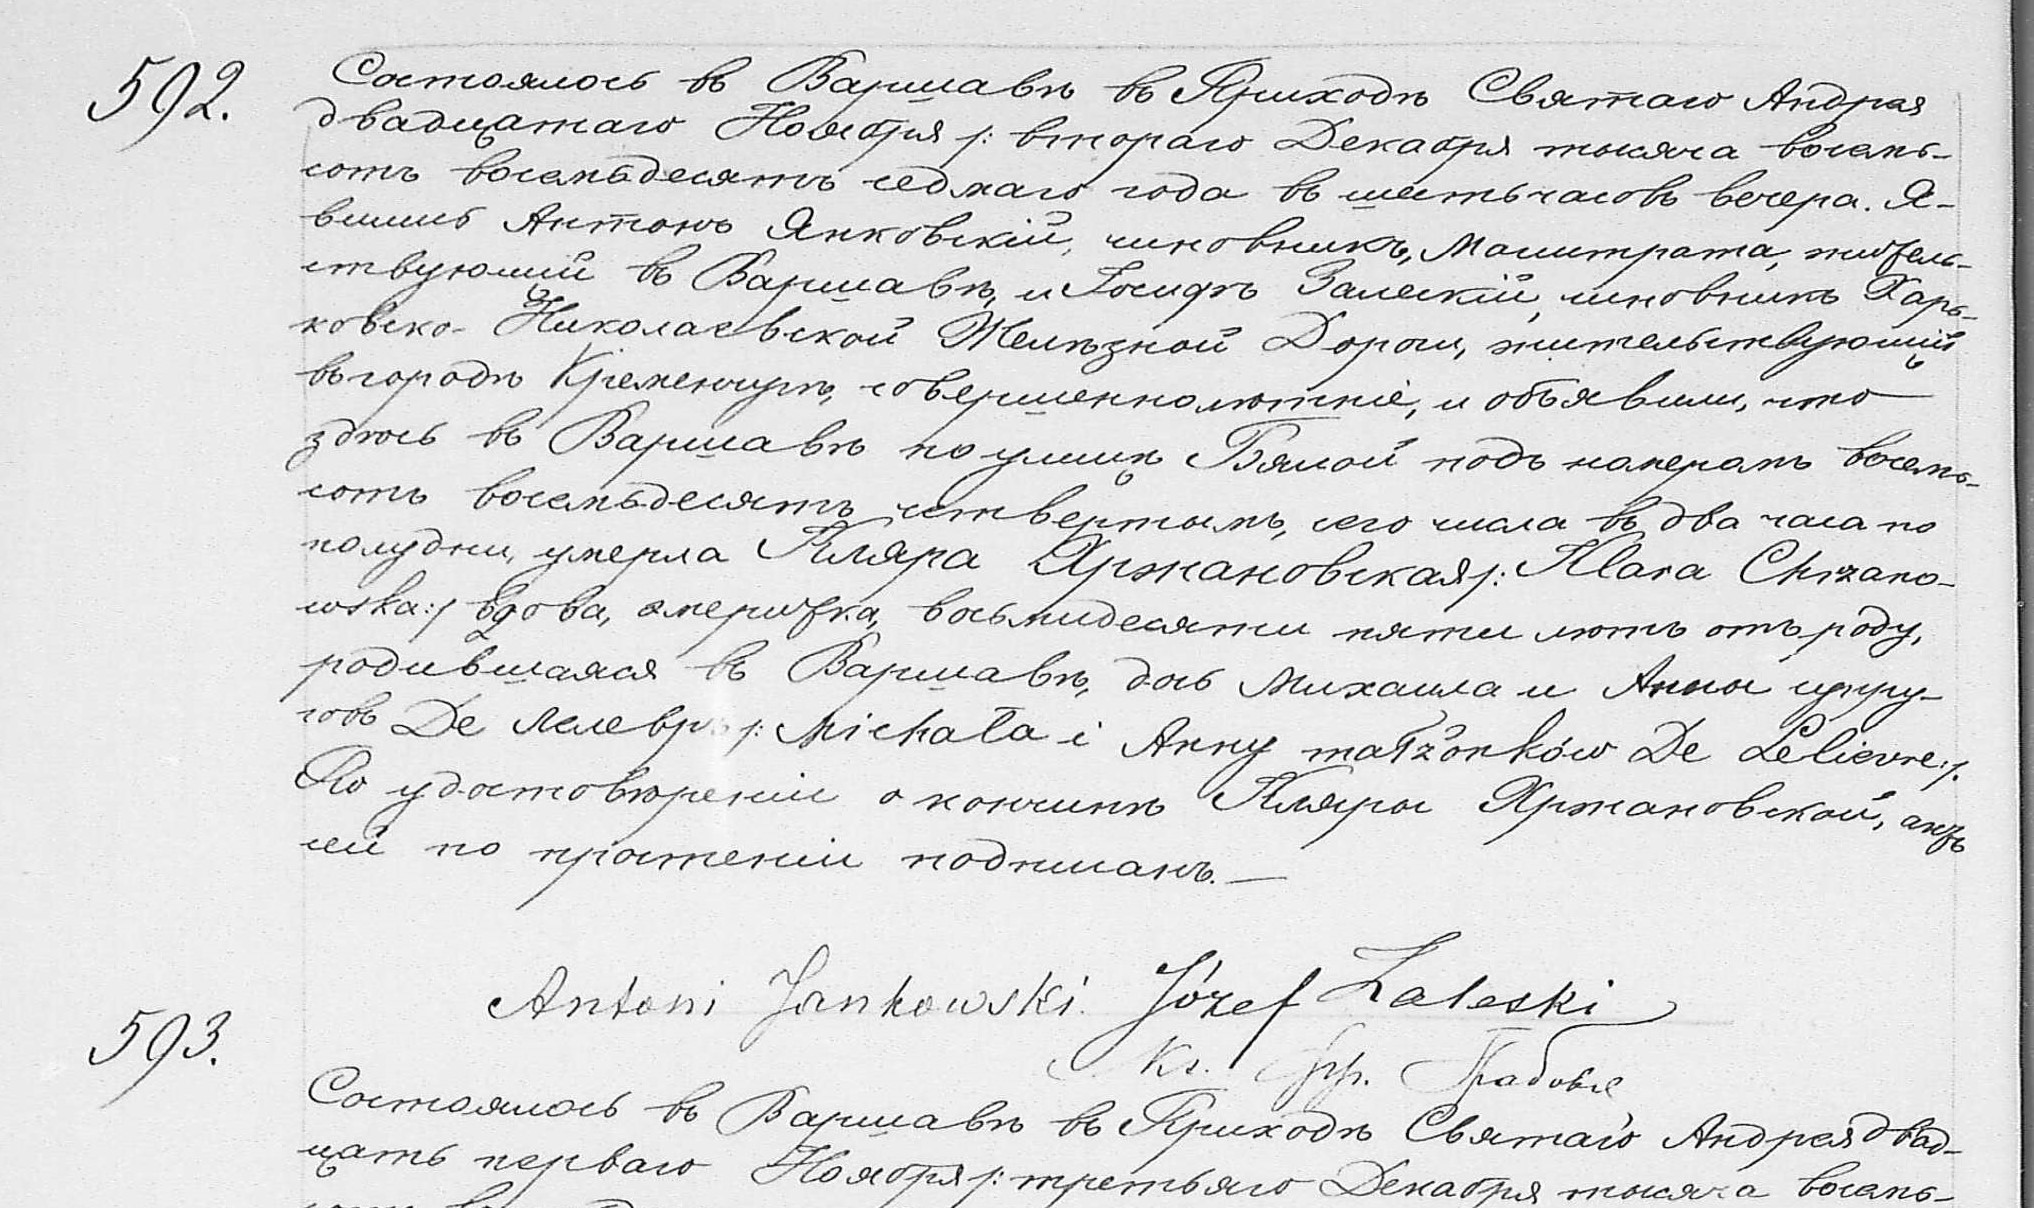 592.
Состоялось въ Варшавѣ въ Приходѣ Святаго Андрея
двадцатаго Ноября /: втораго Декабря тысяча восемь-
сотъ восемьдесятъ седмаго года въ шесть часовъ вечера. Я-
вились Антонъ Янковскій, чиновникъ, Магистрата, житель-
ствующій въ Варшавѣ, и Іосифъ Залескій, чиновникъ Харь-
ковско-Николаевской Желѣзной Дороги, жительствующій
въ городѣ Кременчугѣ, совершеннолѣтніе, и объявили, что
здѣсь въ Варшавѣ по улицѣ Бялой подъ номеромъ восемь-
сотъ восемьдесятъ четвертымъ, сего числа въ два часа по
полудни, умерла Кляра Хржановская /: Klara Chrzano-
wska :/ вдова, эмеритка, восьмидесяти пяти лѣтъ отъ роду,
родившаяся въ Варшавѣ, дочь Михаила и Анны супру-
говъ Де Лелевръ /: Michała i Anny małżonków De Lelievre :/.
По удостовѣреніи о кончинѣ Кляры Хржановской, актъ
сей по прочтеніи подписанъ. —
Antoni Jankowski. Józef Zaleski
Кс.
593.
Состоялось въ Варшавѣ въ Приходѣ Святаго Андрея двад-
цать перваго Ноября /: третьяго Декабря тысяча восемь-